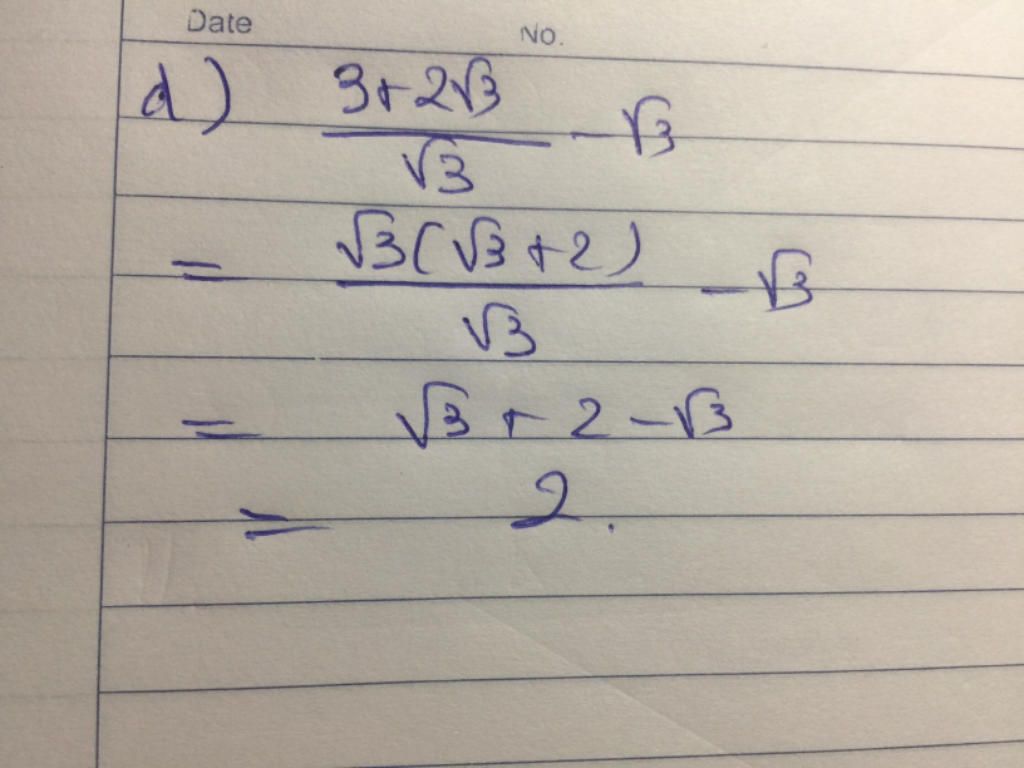 Date No.
d) \frac{3+2\sqrt{3}}{\sqrt{3}} - \sqrt{3}
= \frac{\sqrt{3}(\sqrt{3}+2)}{\sqrt{3}} - \sqrt{3}
= \sqrt{3} + 2 - \sqrt{3}
= 2.